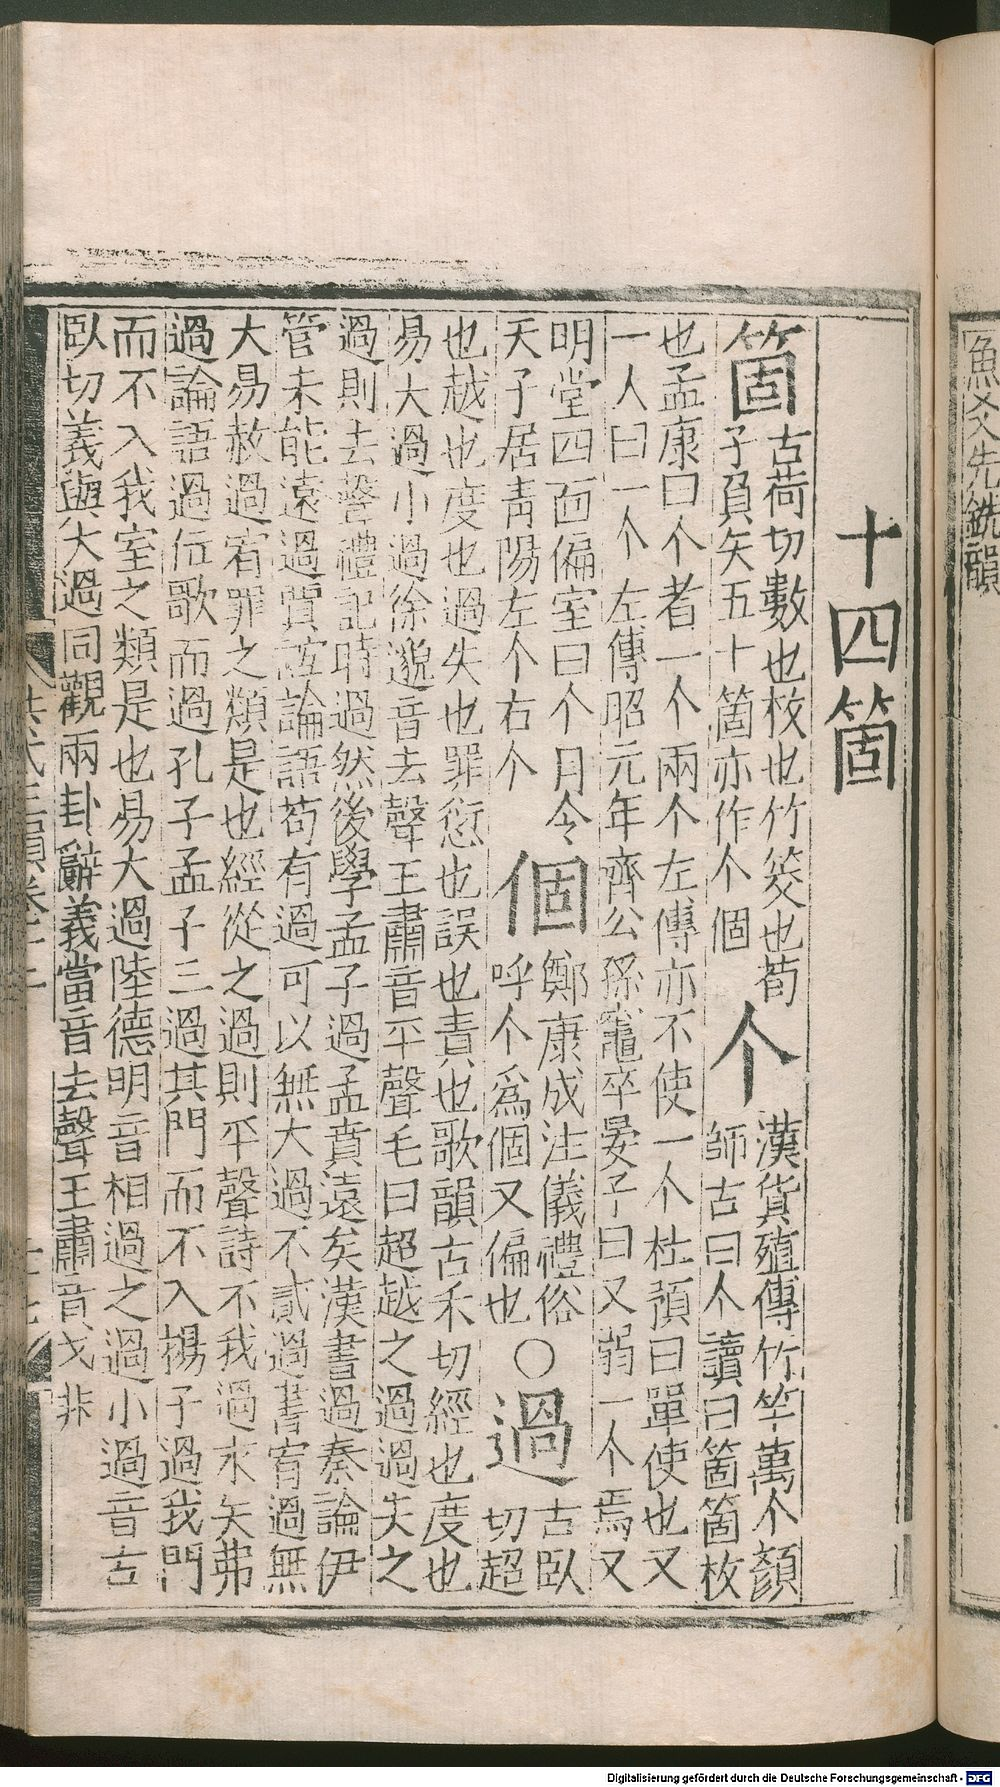 十四箇
箇
古荷切數也枚也竹筊也荀
子負矢五十箇亦作个個
个
漢貨殖傳竹竿萬个顏
師古曰个讀曰箇箇枚
也孟康曰个者一个兩个左傳亦不使一个杜預曰單使也又
一人曰一个左傳昭元年齊公孫竈卒晏子曰又弱一个焉又
明堂四面偏室曰个月令
天子居靑陽左个右个
個
鄭康成注儀禮俗
呼个爲個又偏也
○過
古臥
切超
也越也度也過失也罪愆也誤也責也歌韻古禾切經也度也
易大過小過徐邈音去聲王肅音平聲毛曰超越之過過失之
過則去聲禮記時過然後學孟子過孟賁遠矣漢書過秦論伊
管未能遠過賈誼論語苟有過可以無大過不貳過書宥過無
大易赦過宥罪之類是也經從之過則平聲詩不我過水矢弗
過論語過位歌而過孔子孟子三過其門而不入揚子過我門
而不入我室之類是也易大過陸德明音相過之過小過音古
臥切義與大過同觀兩卦辭義當音去聲王肅音戈非
Digitalisierung gefördert durch die Deutsche Forschungsgemeinschaft - DFG